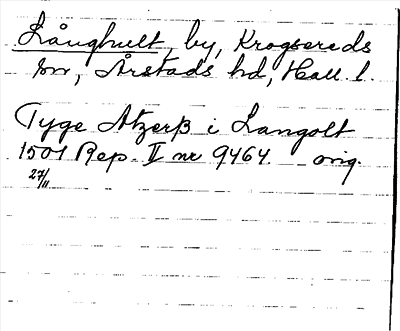 Långhult, by, Krogsereds
sn, Årstads hd, Hall. l.
Tyge Atzerß i Langolt
1501 Rep. II nr 9464. orig.
27/11